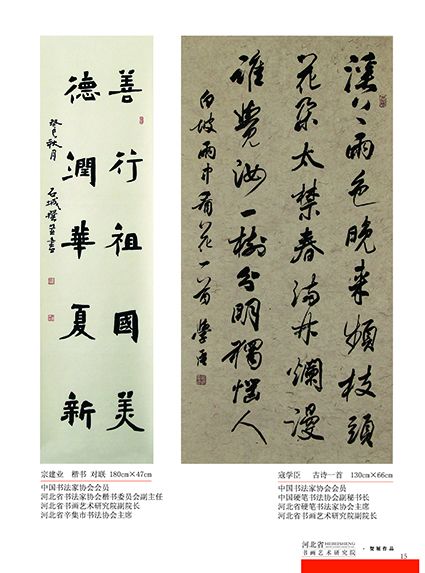 善行祖國美
德潤華夏新
癸巳秋月
石城
漠〻雨色晚来頻枝頭
花朵太禁春 林爛漫
誰覺汝一樹分明獨惱人
白坡雨中看花一首 學臣
宗建业 楷书 对联 180cm×47cm
中国书法家协会会员
河北省书法家协会楷书委员会副主任
河北省书画艺术研究院副院长
河北省辛集市书法协会主席
寇学臣 古诗一首 130cm×66cm
中国书法家协会会员
中国硬笔书法协会副秘书长
河北省硬笔书法家协会主席
河北省书画艺术研究院副院长
河北省 HEBEISHENG
书画艺术研究院
· 贺展作品
15